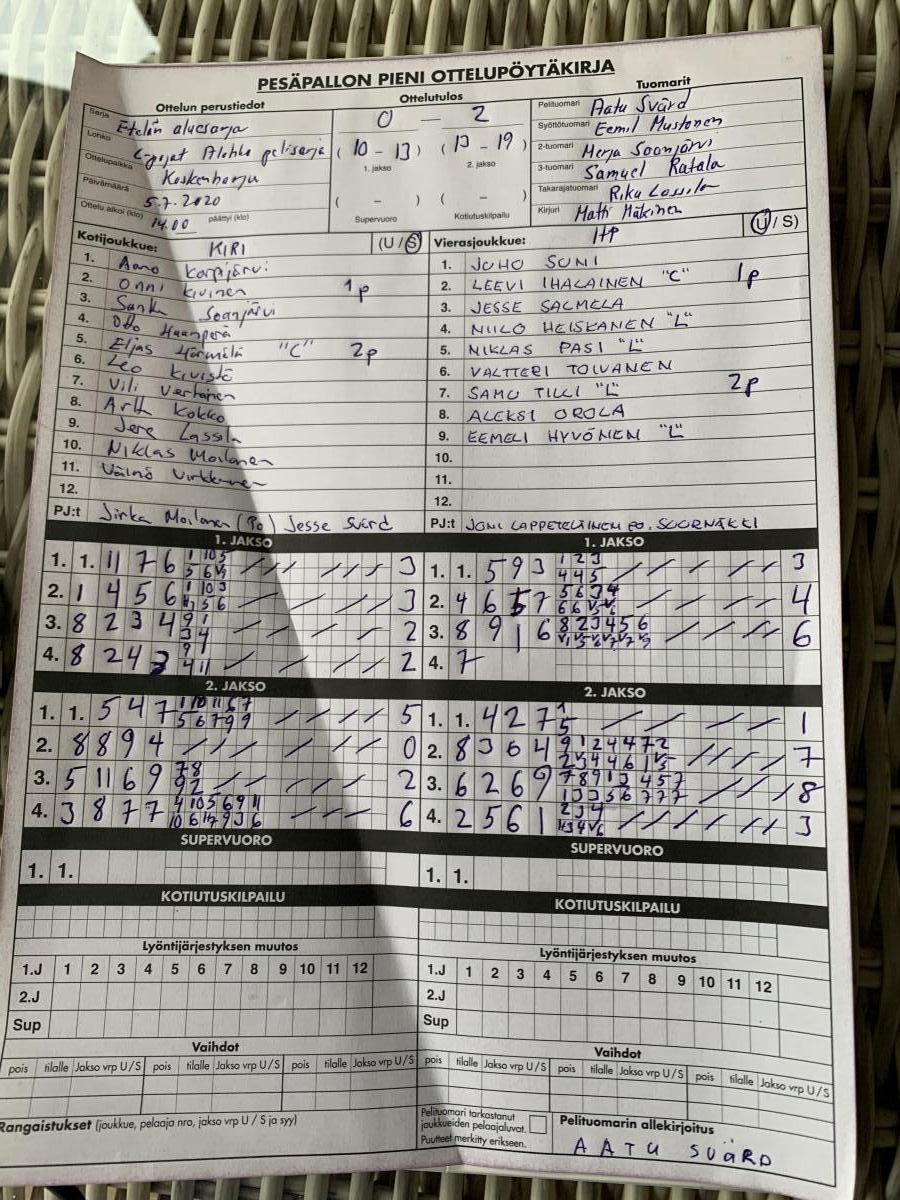 PESÄPALLON PIENI OTTELUPÖYTÄKIRJA
Ottelun perustiedot
Ottelutulos
Tuomarit
Sarja Etelän aluesarja
Lohko E-pojat Alohko pelisarja
Ottelupaikka Koskenharju
Päivämäärä 5.7.2020
Ottelu alkoi (klo) 14.00 päättyi (klo)
0 — 2
(10 - 13) (13 - 19)
1. jakso 2. jakso
( - ) ( - )
Supervuoro Kotiutuskilpailu
Pelituomari Aatu Svärd
Syöttötuomari Eemil Mustonen
2-tuomari Merja Soonjärvi
3-tuomari Samuel Ratala
Takarajatuomari Riku Lassila
Kirjuri Matti Mäkinen
Kotijoukkue: KIRI (U/S)
1. Aamo Karpijärvi
2. Onni Kivinen 1p
3. Soonjärvi
4. Otto Haanperä
5. Eljas Härmälä "C" 2p
6. Leo Kivistö
7. Vili Vertanen
8. Kokko
9. Jere Lassila
10. Niklas Moilanen
11. Väinö Virkkunen
12.
PJ:t Jirka Moilanen (Po) Jesse Svärd
Vierasjoukkue: HP (U/S)
1. JUHO SUNI
2. LEEVI IHALAINEN "C" 1p
3. JESSE SALMELA
4. NIILO HEISKANEN "L"
5. NIKLAS PASI "L"
6. VALTTERI TOIVANEN
7. SAMU TILLI "L" 2p
8. ALEKSI OROLA
9. EEMELI HYVÖNEN "L"
10.
11.
12.
PJ:t JONI LAPPETELÄINEN PO. SUORNÄKKI
1. JAKSO
1. 1. 11 7 6 3
2. 1 4 5 6 3
3. 8 2 3 4 2
4. 8 2 4 3 2
1. JAKSO
1. 1. 5 9 3 1 2 3 4 4 5 3
2. 4 6 5 7 4
3. 8 9 1 6 8 2 3 4 5 6 6
4. 7
2. JAKSO
1. 1. 5 4 7 5
2. 8 8 9 4 0
3. 5 11 6 9 7 8 9 2 2
4. 3 8 7 7 6
2. JAKSO
1. 1. 4 2 7 1
2. 8 3 6 4 7
3. 6 2 6 9 8
4. 2 5 6 1 3
SUPERVUORO
1. 1.
SUPERVUORO
1. 1.
KOTIUTUSKILPAILU
KOTIUTUSKILPAILU
Lyöntijärjestyksen muutos
1.J 1 2 3 4 5 6 7 8 9 10 11 12
2.J
Sup
Lyöntijärjestyksen muutos
1.J 1 2 3 4 5 6 7 8 9 10 11 12
2.J
Sup
Vaihdot
pois tilalle Jakso vrp U/S pois tilalle Jakso vrp U/S pois tilalle Jakso vrp U/S
Vaihdot
pois tilalle Jakso vrp U/S pois tilalle Jakso vrp U/S pois tilalle Jakso vrp U/S
Rangaistukset (joukkue, pelaaja nro, jakso vrp U / S ja syy)
Pelituomari tarkastanut
joukkueiden pelaajaluvat.
Puutteet merkitty erikseen.
Pelituomarin allekirjoitus
AATU SVÄRD